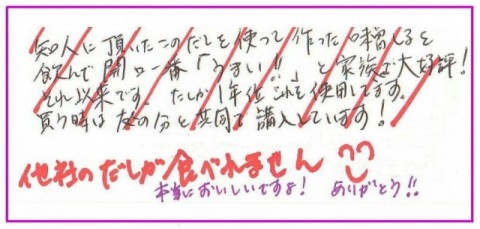 知人に頂いたこのだしを使って作った味噌汁を
飲んで開口一番「うまい!!」と家族で大好評!
それ以来です。たしか1年位これを使用してます。
買う時は友の分と共同で購入しています!
他社のだしが食べれません
本当においしいですよ! ありがとう!!